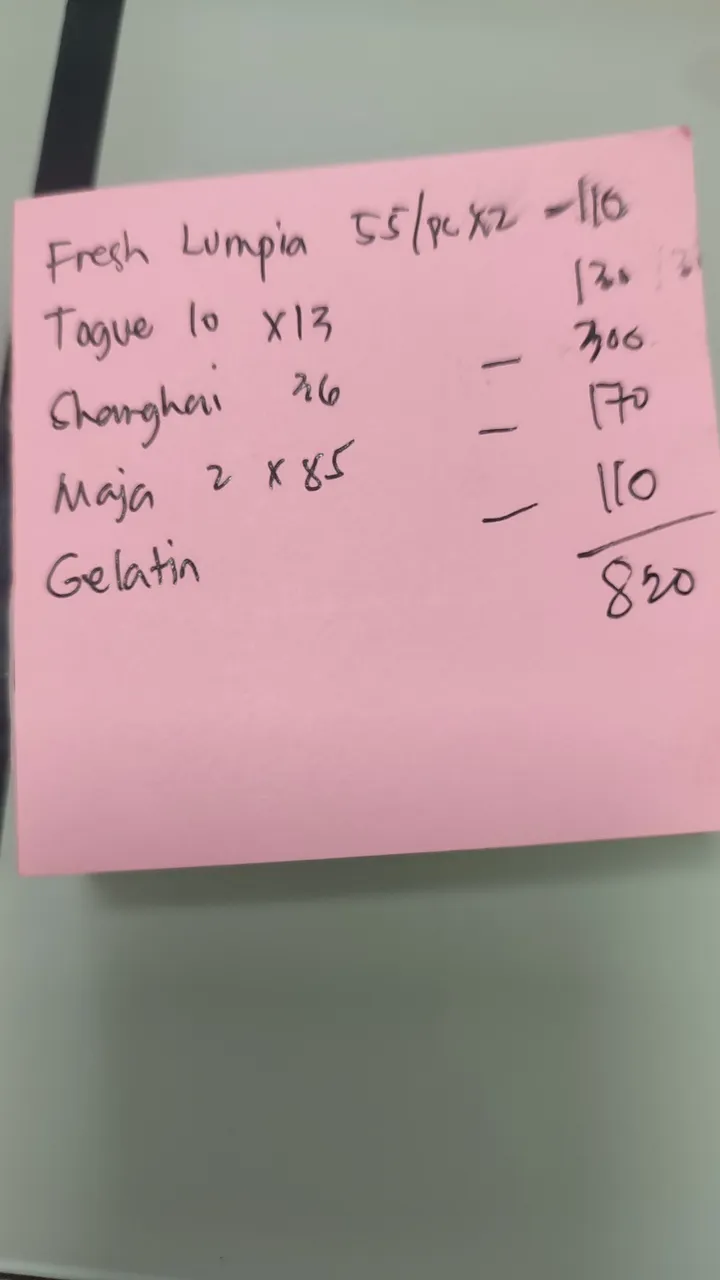 Fresh Lumpia 55/pc x2 - 110
Togue 10 x13 130
Shanghai 36 - 300
Maja 2 x 85 - 170
Gelatin - 110
820